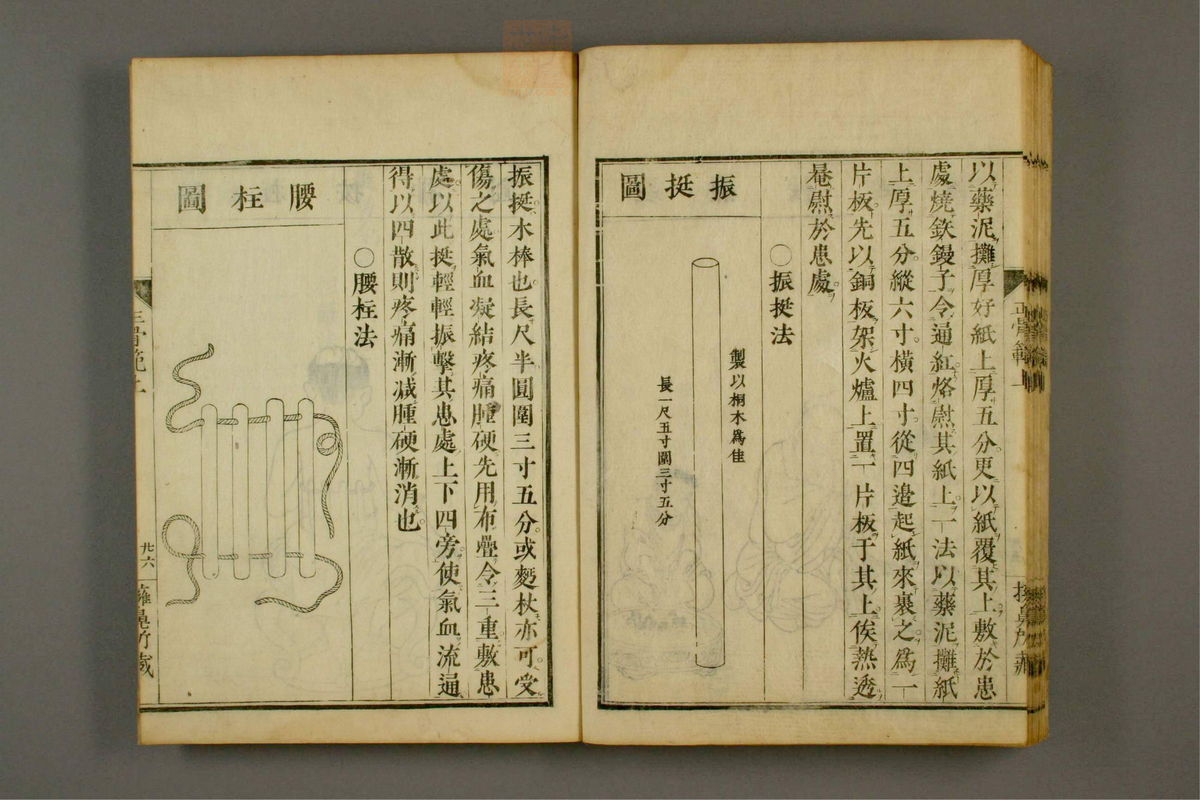 以藥泥攤厚好紙上厚五分更以紙覆其上敷於患
處燒鉄鏝子令通紅烙熨其紙上一法以藥泥攤紙
上厚五分縱六寸橫四寸從四邉起紙來裹之為一
片板先以銅板架火爐上置一片板于其上俟熱透
罨慰於患處
○振挺法
振挺圖
製以桐木爲佳
長一尺五寸圍三寸五分
振挺木棒也長尺半圓圍三寸五分或麪杖亦可受
傷之處氣血凝結疼痛腫硬先用布疊令三重敷患
處以此挺輕輕振擊其患處上下四旁使氣血流通
得以四散則疼痛漸減腫硬漸消也
○腰柱法
腰柱圖
正骨範
廾六